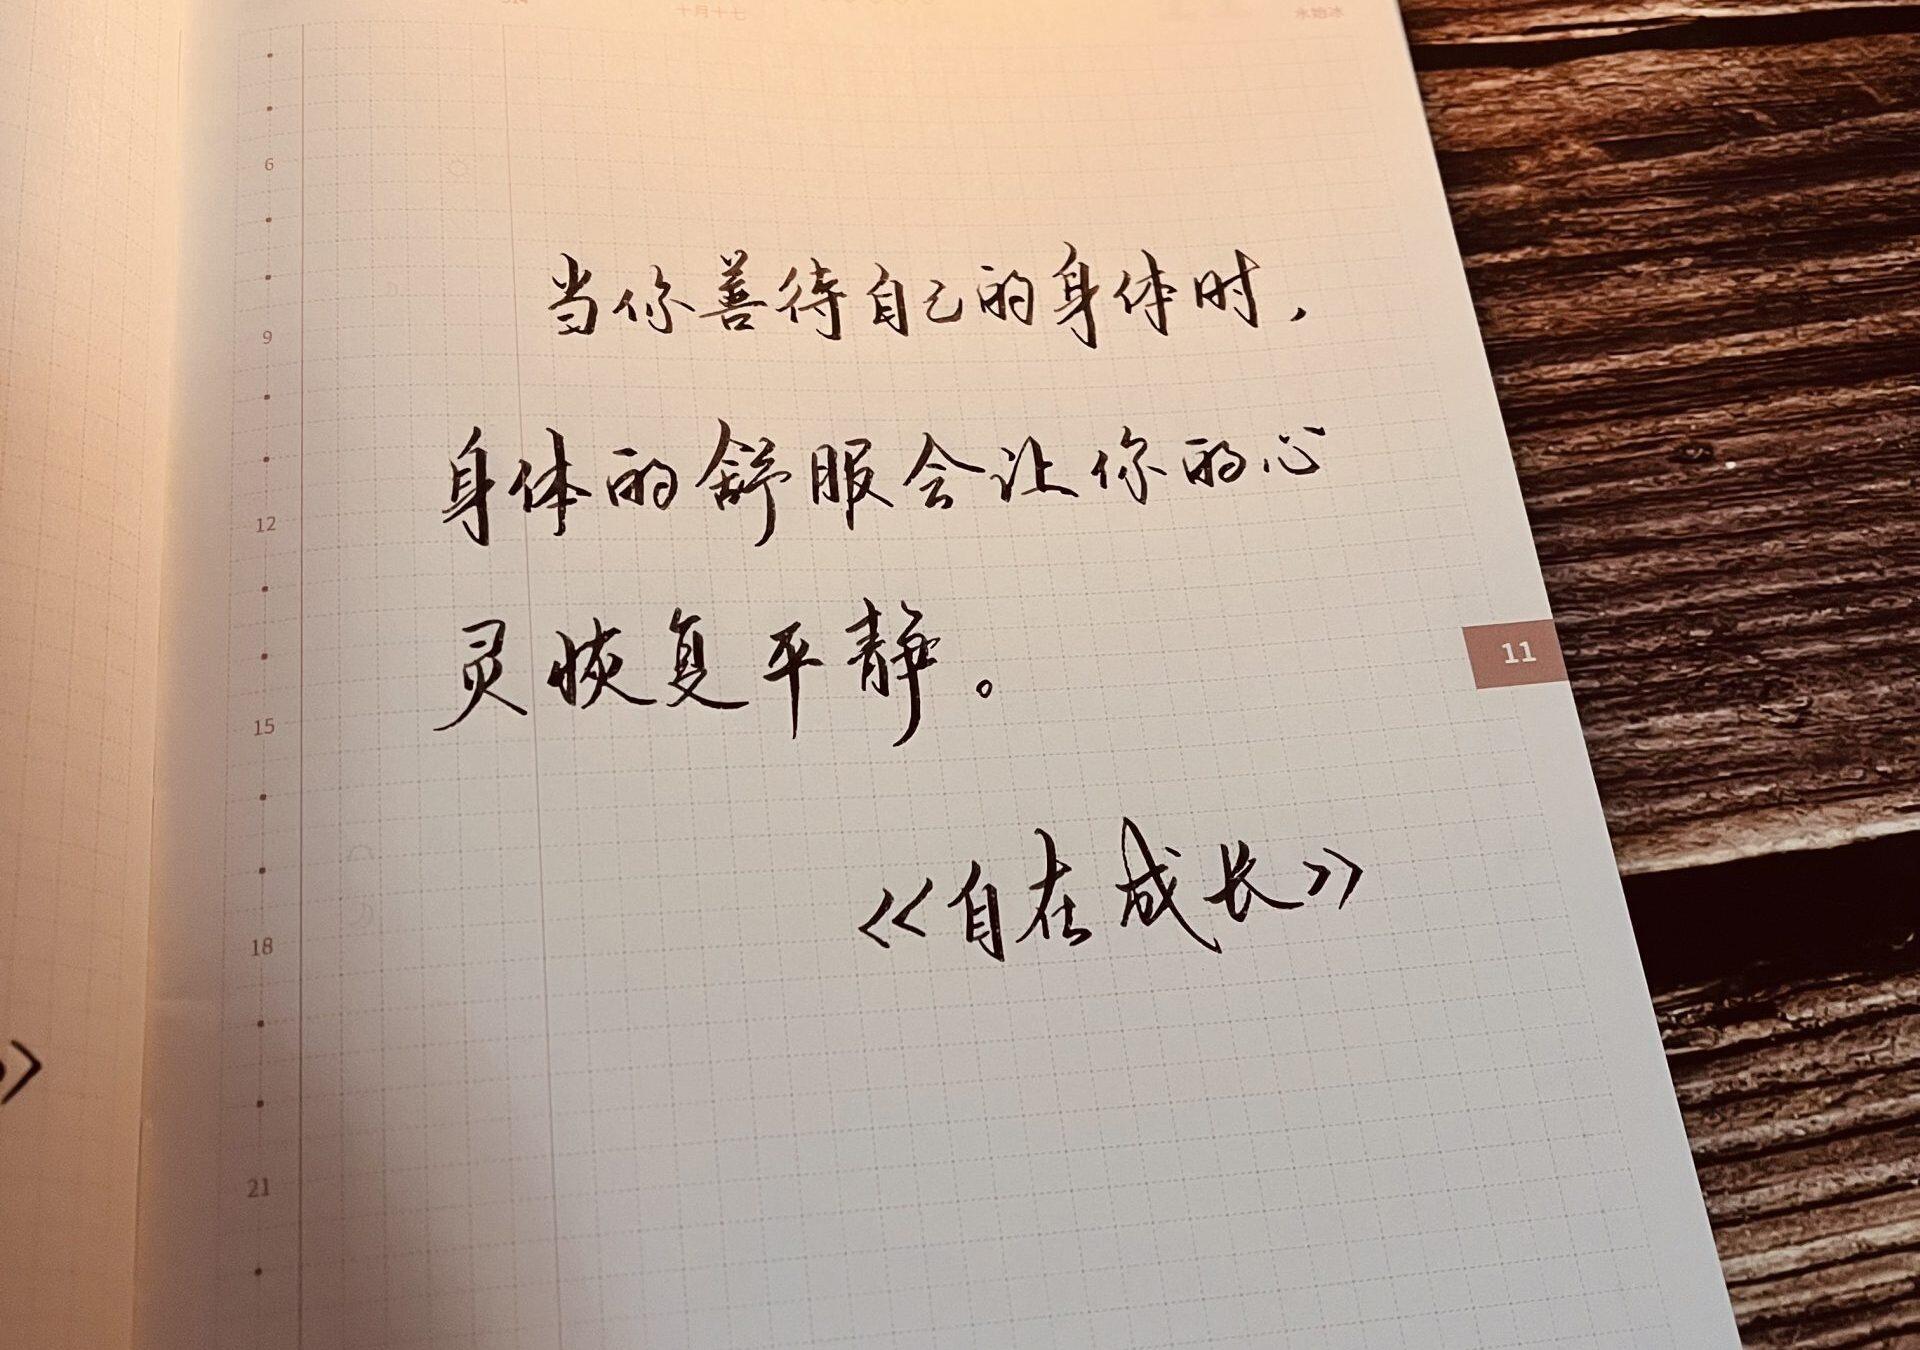 十月十七
水始冰
6
当你善待自己的身体时，
9
身体的舒服会让你的心
12
灵恢复平静。
11
15
《自在成长》
18
21